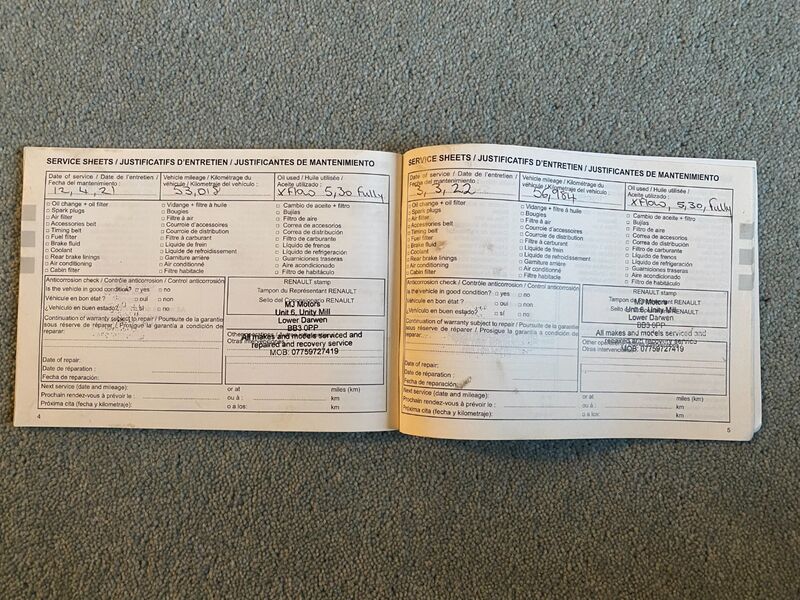 SERVICE SHEETS / JUSTIFICATIFS D'ENTRETIEN / JUSTIFICANTES DE MANTENIMIENTO
Date of service / Date de l'entretien / Fecha del mantenimiento :
12, 4, 21
Vehicle mileage / Kilométrage du véhicule / Kilometraje del vehículo :
53,018
Oil used / Huile utilisée / Aceite utilizado :
XFlow 5,30 Fully
Oil change + oil filter
Spark plugs
Air filter
Accessories belt
Timing belt
Fuel filter
Brake fluid
Coolant
Rear brake linings
Air conditioning
Cabin filter
Vidange + filtre à huile
Bougies
Filtre à air
Courroie d'accessoires
Courroie de distribution
Filtre à carburant
Liquide de frein
Liquide de refroidissement
Garniture arrière
Air conditionné
Filtre habitacle
Cambio de aceite + filtro
Bujías
Filtro de aire
Correa de accesorios
Correa de distribución
Filtro de carburante
Líquido de frenos
Líquido de refrigeración
Guarniciones traseras
Aire acondicionado
Filtro de habitáculo
Anticorrosion check / Contrôle anticorrosion / Control anticorrosión
Is the vehicle in good condition? yes no
Véhicule en bon état ? oui non
¿Vehículo en buen estado? sí no
Continuation of warranty subject to repair / Poursuite de la garantie sous réserve de réparation / Prosigue la garantía a condición de reparar:
Date of repair:
Date de réparation :
Fecha de reparación:
RENAULT stamp
Tampon du Représentant RENAULT
Sello del RENAULT
MJ Motors
Unit 6, Unity Mill
Lower Darwen
BB3 0PP
All makes and models serviced and
repaired and recovery service
MOB: 07759727419
Next service (date and mileage): or at miles (km)
Prochain rendez-vous à prévoir le : ou à : km
Próxima cita (fecha y kilometraje): o a los: km
4
SERVICE SHEETS / JUSTIFICATIFS D'ENTRETIEN / JUSTIFICANTES DE MANTENIMIENTO
Date of service / Date de l'entretien / Fecha del mantenimiento :
5, 3, 22
Vehicle mileage / Kilométrage du véhicule / Kilometraje del vehículo :
Oil used / Huile utilisée / Aceite utilizado :
XFlow, 5,30, Fully
Oil change + oil filter
Spark plugs
Air filter
Accessories belt
Timing belt
Fuel filter
Brake fluid
Coolant
Rear brake linings
Air conditioning
Cabin filter
Vidange + filtre à huile
Bougies
Filtre à air
Courroie d'accessoires
Courroie de distribution
Filtre à carburant
Liquide de frein
Liquide de refroidissement
Garniture arrière
Air conditionné
Filtre habitacle
Cambio de aceite + filtro
Bujías
Filtro de aire
Correa de accesorios
Correa de distribución
Filtro de carburante
Líquido de frenos
Líquido de refrigeración
Guarniciones traseras
Aire acondicionado
Filtro de habitáculo
Anticorrosion check / Contrôle anticorrosion / Control anticorrosión
Is the vehicle in good condition? yes no
Véhicule en bon état ? oui non
¿Vehículo en buen estado? sí no
Continuation of warranty subject to repair / Poursuite de la garantie sous réserve de réparation / Prosigue la garantía a condición de reparar:
Date of repair:
Date de réparation :
Fecha de reparación:
RENAULT stamp
Tampon du RENAULT
Sello del RENAULT
MJ Motors
Unit 6, Unity Mill
Lower Darwen
BB3 0PP
All makes and models serviced and
repaired and recovery service
MOB: 07759727419
Next service (date and mileage): or at miles (km)
Prochain rendez-vous à prévoir le : ou à : km
Próxima cita (fecha y kilometraje): o a los: km
5